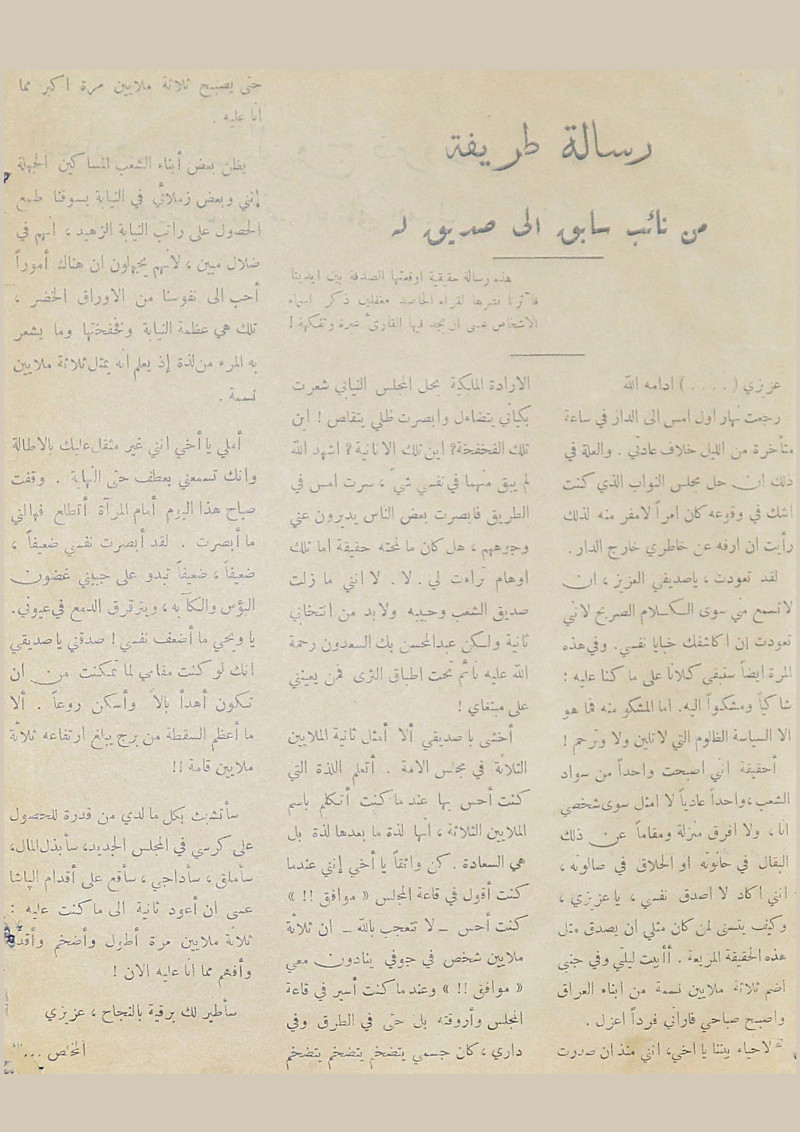 رسالة طريفة
من نائب سابق الى صديق له
هذه رسالة حقيقية اوقعتها الصدفة بين ايدينا
فآثرنا نشرها لقراء الحاصد مغفلين ذكر اسماء
الاشخاص عسى ان يجد فيها القارئ عبرة وتفكهة !
عزيزي ( . . . . ) ادامه الله
رجعت نهار اول امس الى الدار في ساعة
متأخرة من الليل خلاف عادتي . والعلة في
ذلك ان حل مجلس النواب الذي كنت
اشك في وقوعه كان امراً لامفر منه لذلك
رأيت ان ارفه عن خاطري خارج الدار .
لقد تعودت ، ياصديقي العزيز ، ان
لاتسمع مي سوى الكلام الصريح لاني
تعودت ان اكاشفك خبايا نفسي . وفي هذه
المرة ايضاً سنبقى كلانا على ما كنا عليه :
شاكياً ومشكواً اليه. اما المشكو منه فما هو
الا السياسة الظلوم التي لاتلين ولا وترحم !
أحقيقة اني اصبحت واحداً من سواد
الشعب ، واحداً عادياً لا امثل سوى شخصي
انا ، ولا افرق منزلة ومقاماً عن ذلك
البقال في حانوته او الحلاق في صالونه ،
انني اكاد لا اصدق نفسي ، يا عزيزي ،
وكيف يتسنى لمن كان مثلي ان يصدق مثل
هذه الحقيقة المريعة . أأبيت ليلتي وفي جنبي
اضم ثلاثة ملايين نسمة من ابناء العراق
واصبح صباحي فاراني فرداً اعزل .
لاحياء بيننا يا اخي، انني منذ ان صدرت
الارادة الملكية بحل المجلس النيابي شعرت
بكياني يتضاءل وابصرت ظلي يتقاص ! اين
تلك الفخفخة؟ اين تلك الانانية؟ اشهد الله
لم يبق منهما في نفسي شيء ، سرت امس في
الطريق فابصرت بعض الناس يديرون عني
وجوههم ، هل كان ما لمحته حقيقة اما تلك
اوهام تراءت لي . لا . لا انني ما زلت
صديق الشعب وحبيبه ولابد من انتخابي
ثانية ولكن عبدالمحسن بك السعدون رحمة
الله عليه نائم تحت اطباق الثرى فمن يعينني
على مبتغاي !
أخشى يا صديقي ألا أمثل ثانية الملايين
الثلاثة في مجلس الامة . أتعلم اللذة التي
كنت أحس بها عند ما كنت أتكلم باسم
الملايين الثلاثة ، انها لذة ما بعدها لذة بل
هي السعادة . كن واثقاً يا أخي إنني عندما
كنت أقول في قاعة المجلس « موافق !! »
كنت أحس _ لا تتعجب بالله _ ان ثلاثة
ملايين شخص في جوفي ينادون معي
« موافق !! » وعند ما كنت أسير في قاعة
المجلس وأروقته بل حتى في الطرق وفي
داري ، كان جسمي يتضخم يتضخم يتضخم
حتى يصبح ثلاثة ملايين مرة اكبر مما
انا عليه .
يظن بعض أبناء الشعب المساكين الجهلة
إنني وبعض زملائي في النيابة يسوقنا طمع
الحصول على راتب النيابة الزهيد ، انهم في
ضلال مبين ، لانهم يجهلون ان هناك أموراً
أحب الى نفوسنا من الاوراق الخضر ،
تلك هي عظمة النيابة وفخفختها وما يشعر
به المرء من لذة إذ يعلم انه يمثل ثلاثة ملايين
نسمة .
أملي يا أخي انني غير مثقل عليك بالاطالة
وانك تسمعني بعطف حتى النهاية . وقفت
صباح هذا اليوم أمام المرآة أتطلع فهالني
ما أبصرت . لقد أبصرت نفسي ضعيفاً ،
ضعيفاً ، ضعيفاً تبدو على جبيني غضون
البؤس والكآبه ، ويترقرق الدمع في عيوني.
يا ويحي ما أضعف نفسي ! صدقني يا صديقي
انك لو كنت مقامي لما تمكنت من ان
تكون أهدأ بالاً وأسكن روعاً . ألا
ما أعظم السقطة من برج يبلغ ارتفاعه ثلاثة
ملايين قامة !!
سأتشبث بكل ما لدي من قدرة للحصول
على كرسي في المجلس الجديد، سأبذل المال،
سأملق ، سأداجي ، سأقع على أقدام الپاشا
عسى ان أعود ثانية الى ما كنت عليه :
ثلاثة ملايين مرة أطول وأضخم وأقدر
وأفهم مما انا عليه الان !
سأطير لك برقية بالنجاح ، عزيزي
المخلص ...